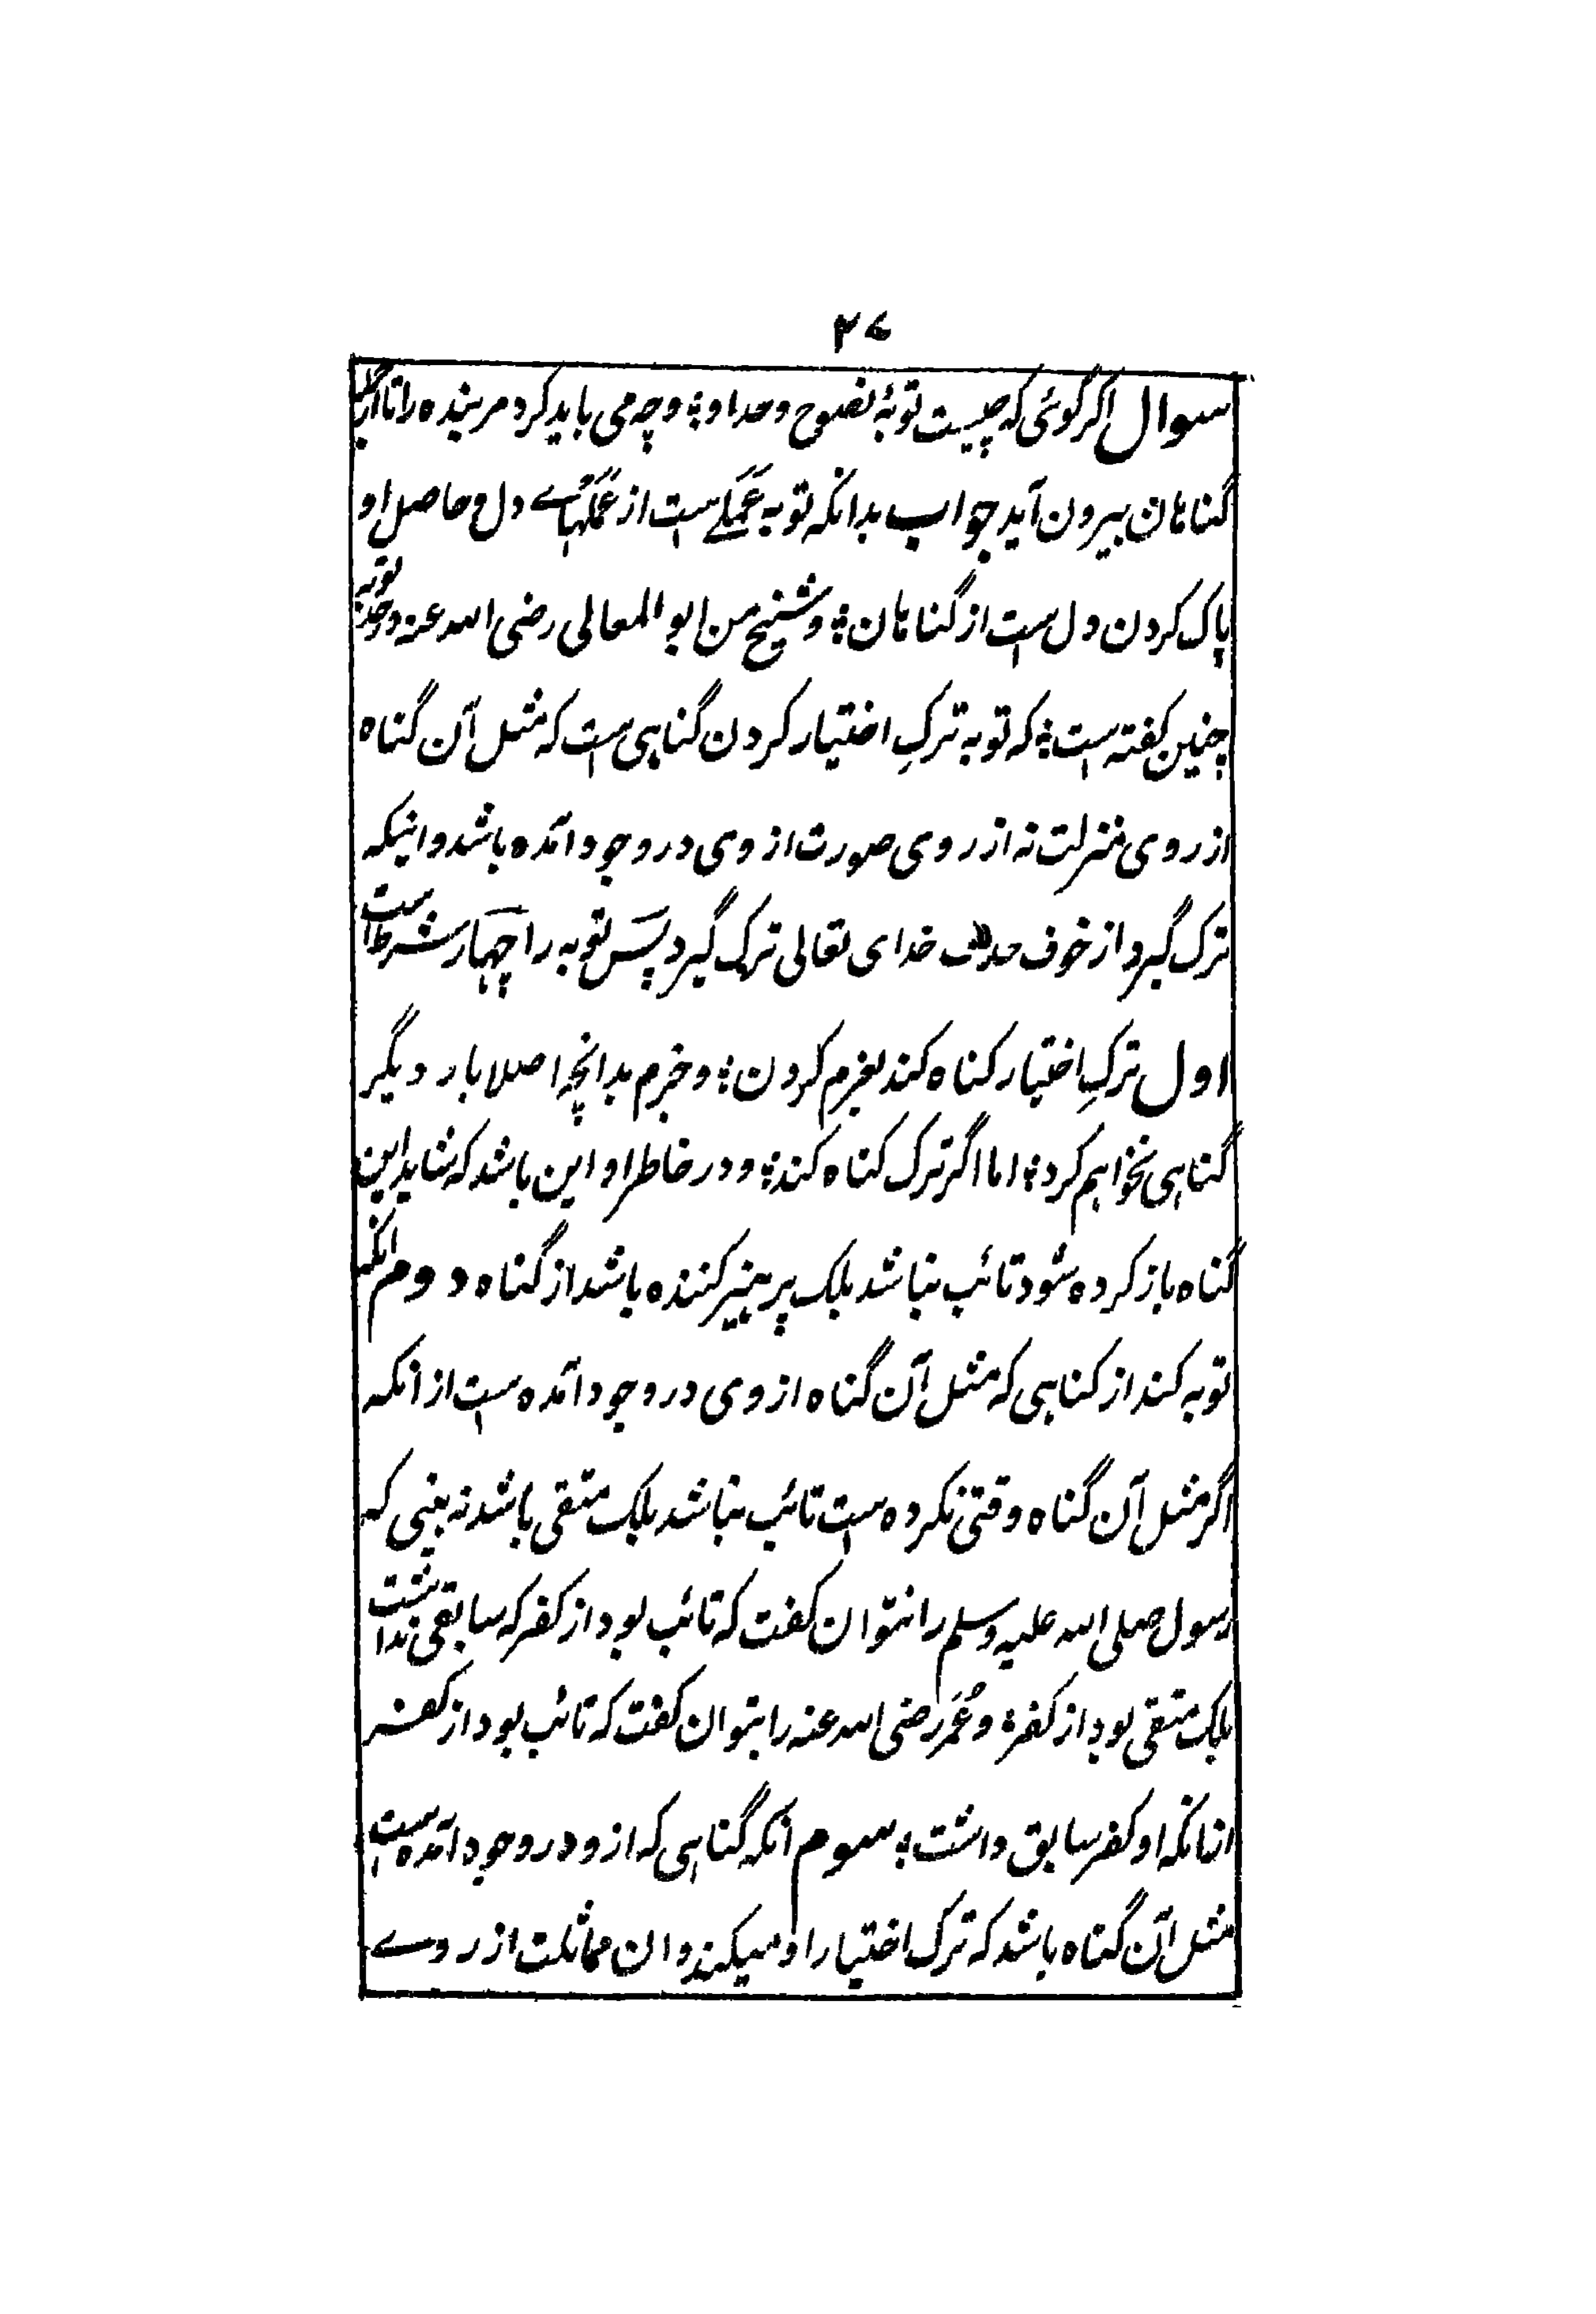 ۲۷
سوال اگر گوئی که چیست توبهٔ نصوح و حد او؛ و چه می باید کرد مر بنده را تا از
گناهان بیرون آید جواب بدانکه توبه عَمَلے ست از عَمَلهاے دل و حاصل او
پاک کردن دل ست از گناهان؛ و شیخ من ابو المعالی رضی الله عنه در حد توبه
چنین گفته ست؛ که توبه ترکِ اختیار کردن گناہی ست که مثل آن گناه
از روی منزلت نه از روی صورت از وی در وجود آمده باشد و اینکه
ترک گیرد از خوف خدای تعالی ترک گیرد پَس توبه را چهَار شرط است
اول ترکِ اختیار کناه کند بعزم کردن؛ و جزم بدانچه اصلا بار دیگر
گناہی نخواہم کرد؛ اما اگر ترک کناه کند؛ و در خاطر او این باشد که شاید این
گناه باز کرده شود تائب نباشد بلک پرہیز کننده باشد از گناه دوم انکه
توبه کند از کناہی که مثل آن گناه از وی در وجود آمده ست از انکه
اگر مثل آن گناه وقتی نکرده ست تائب نباشد بلک متقی باشد نه بینی که
رسول صلی الله علیه وسلم را نتوان کفت که تائب بود از کفر که سابقی نداشت
بلک متقی بود از کفر؛ و عُمَر رضی الله عنه را بتوان کفت که تائب بود از کفر
ازانکه او کفر سابق داشت؛ سوم انکه گناہی که ازو در وجود آمده ست
مثل آن گناه باشد که ترک اختیار او میکند و ان مماثلت از روے